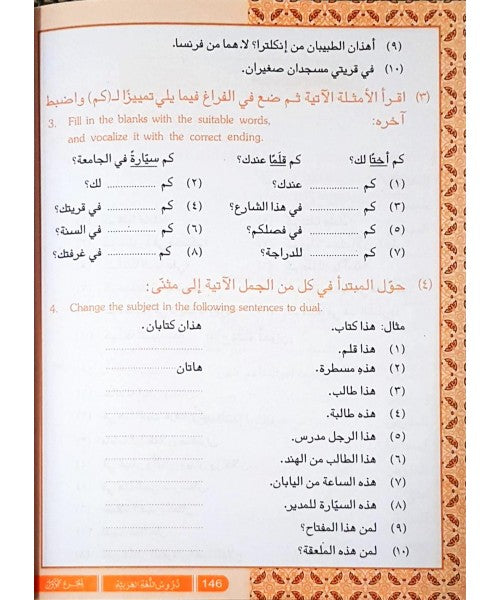 (٩) أهذان الطبيبان من إنكلترا؟ لا. هما من فرنسا.
(١٠) في قريتي مسجدان صغيران.
(٣) اقرأ الأمثلة الآتية ثم ضع في الفراغ فيما يلي تمييزًا لـ(كم) واضبط
آخره:
3. Fill in the blanks with the suitable words,
and vocalize it with the correct ending.
كم أختًا لك؟ كم قلمًا عندك؟ كم سيّارةً في الجامعة؟
(١) كم ................ عندك؟ (٢) كم ................ لك؟
(٣) كم ................ في هذا الشارع؟ (٤) كم ................ في قريتك؟
(٥) كم ................ في فصلكم؟ (٦) كم ................ في السنة؟
(٧) كم ................ للدراجة؟ (٨) كم ................ في غرفتك؟
(٤) حوّل المبتدأ في كل من الجمل الآتية إلى مثنّى:
4. Change the subject in the following sentences to dual.
مثال: هذا كتاب. هذان كتابان.
(١) هذا قلم. ................
(٢) هذه مسطرة. هاتان ................
(٣) هذا طالب. ................
(٤) هذه طالبة. ................
(٥) هذا الرجل مدرس. ................
(٦) هذا الطالب من الهند. ................
(٧) هذه الساعة من اليابان. ................
(٨) هذه السيّارة للمدير. ................
(٩) لمن هذا المفتاح؟ ................
(١٠) لمن هذه الملعقة؟ ................
146 دروس اللغة العربية الجزء الأول